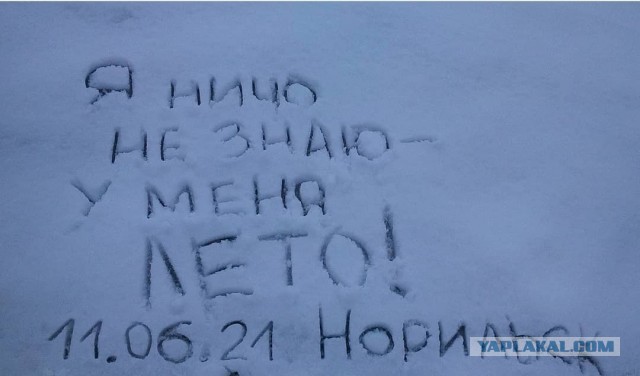 Я НИЧО
НЕ ЗНАЮ—
У МЕНЯ
ЛЕТО!
11.06.21 НОРИЛЬСК
YAPLAKAL.COM